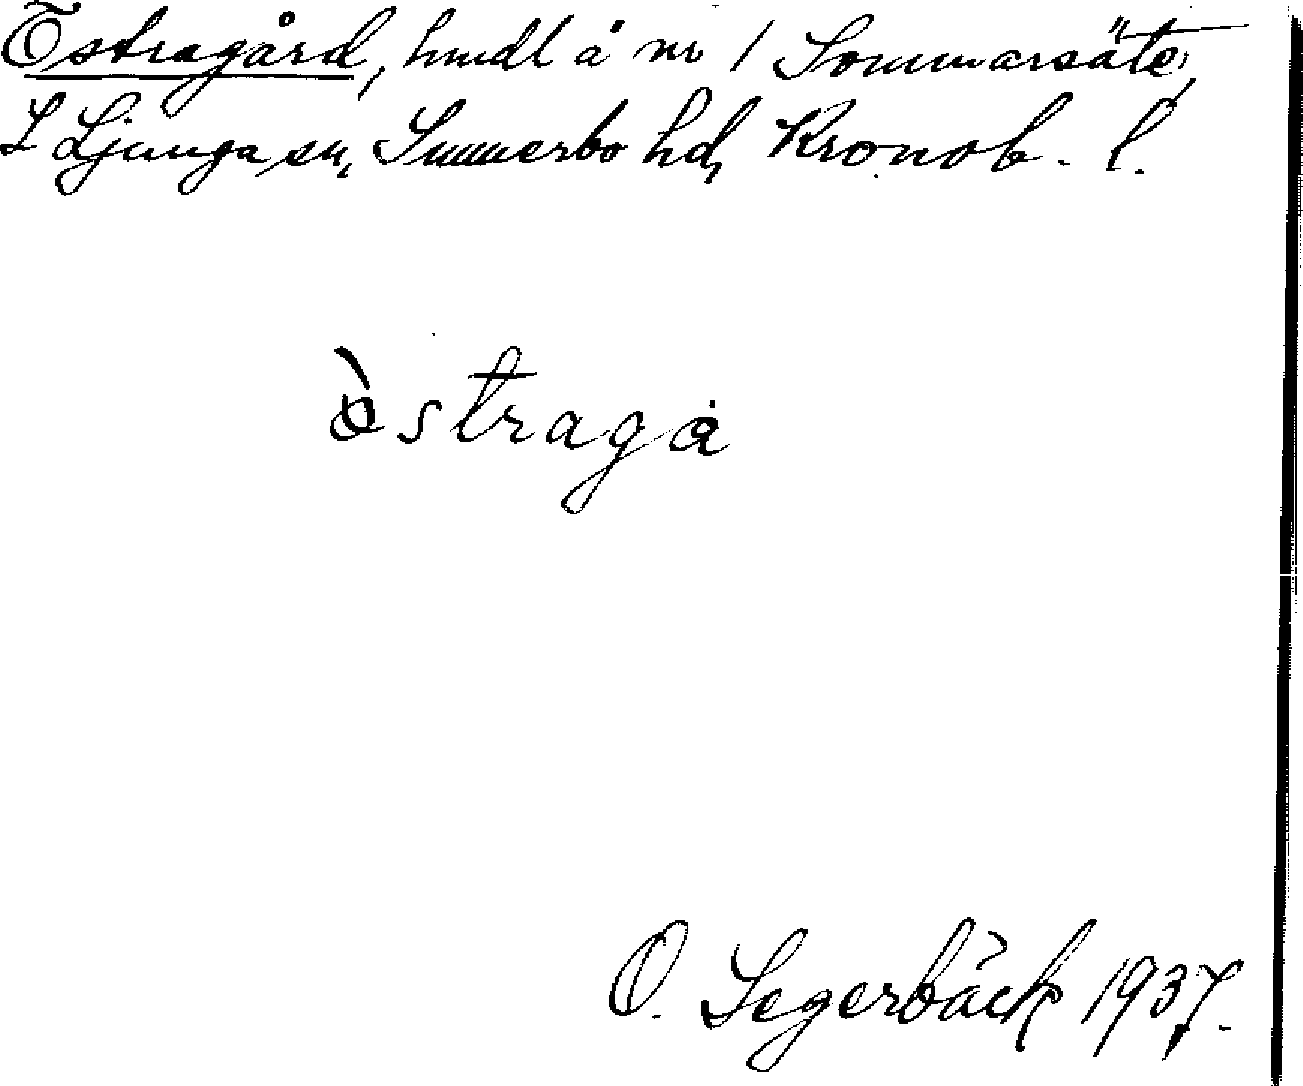 Östragård, hmdl å nr 1 Sommarsäte,
S Ljunga sn, Sunnerbo hd, Kronob. l.
òstragå
O. Segerbäck 1937.